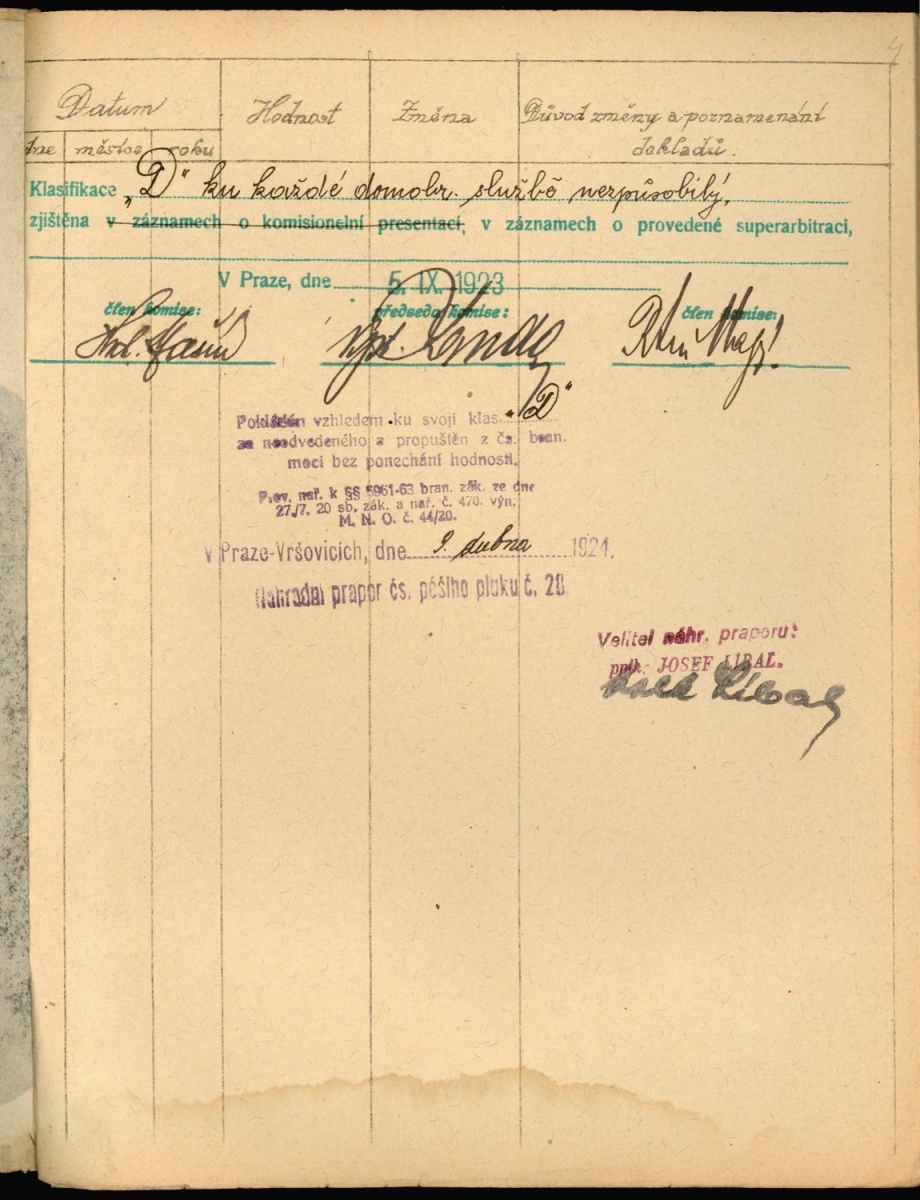 4
Datum Hodnost Změna Důvod změny a poznamenání
dne měsíce roku dokladů.
Klasifikace „D“ ku každé domobr. službě nezpůsobilý.
zjištěna v záznamech o komisionelní presentaci, v záznamech o provedené superarbitraci,
V Praze, dne 5. IX. 1923
člen komise: předseda komise: člen komise:
Pokládán vzhledem ku svojí klas. „D“
za neodvedeného a propuštěn z čs. bran.
moci bez ponechání hodnosti.
Prov. nař. k §§ 5961-63 bran. zák. ze dne
27./7. 20 sb. zák. a nař. č. 470. výn.
M. N. O. č. 44/20.
V Praze-Vršovicích, dne 9. dubna 1924.
Náhradní prapor čs. pěšího pluku č. 28.
Velitel náhr. praporu:
pplk. JOSEF LIBAL.
Libal